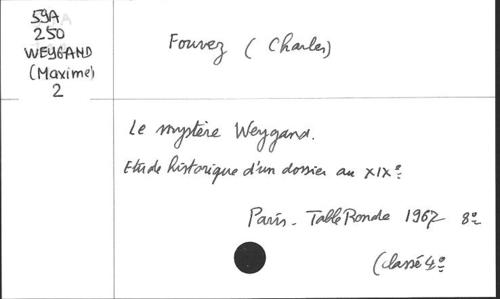 59A
250
WEYGAND
(Maxime)
2
Fouvez (Charles)
Le mystère Weygand.
Etude historique d'un dossier au XIXe
Paris - Table Ronde 1967 8o
(classé 4o